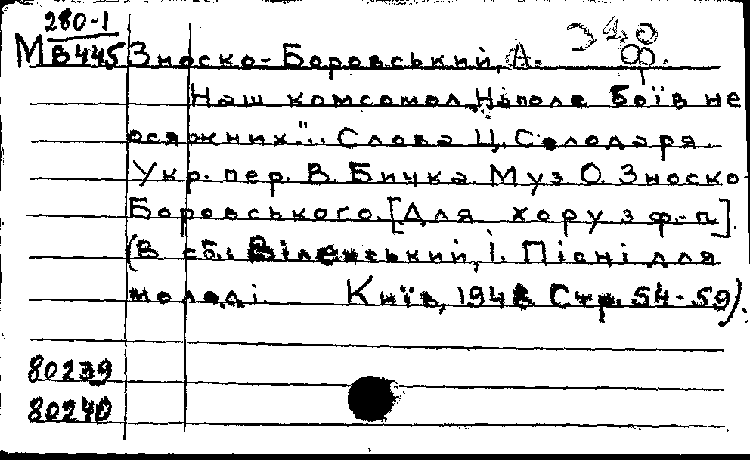 280-1
М В445 Зноско-Боровський, А.
Наш комсомол „На поле боїв не
осяжних". Слова Ц. Солодаря.
Укр. пер. В. Бичка. Муз О. Зноско
Боровського. [Для хору з ф-п].
(В сб.: Віленський, І. Пісні для
молоді. Київ, 194 Стр. 54-59).
80239
80240